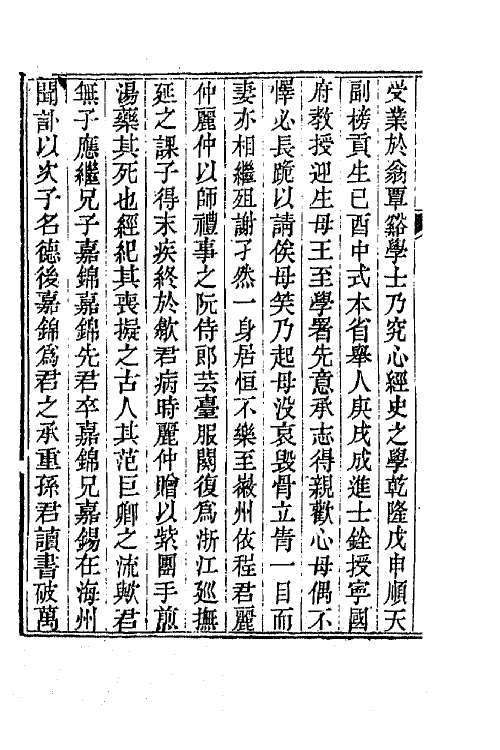 受業於翁覃谿學士乃究心經史之學乾隆戊申順天
副榜貢生己酉中式本省舉人庚戌成進士銓授寧國
府教授迎生母王至學署先意承志得親歡心母偶不
懌必長跪以請俟母笑乃起母没哀毀骨立眚一目而
妻亦相繼殂謝孑然一身居恒不樂至徽州依程君麗
仲麗仲以師禮事之阮侍郎芸臺服闋復爲浙江廵撫
延之課子得末疾終於歙君病時麗仲贈以紫團手煎
湯藥其死也經紀其喪擬之古人其范巨卿之流歟君
無子應繼兄子嘉錦嘉錦先君卒嘉錦兄嘉錫在海州
聞訃以次子名德後嘉錦爲君之承重孫君讀書破萬